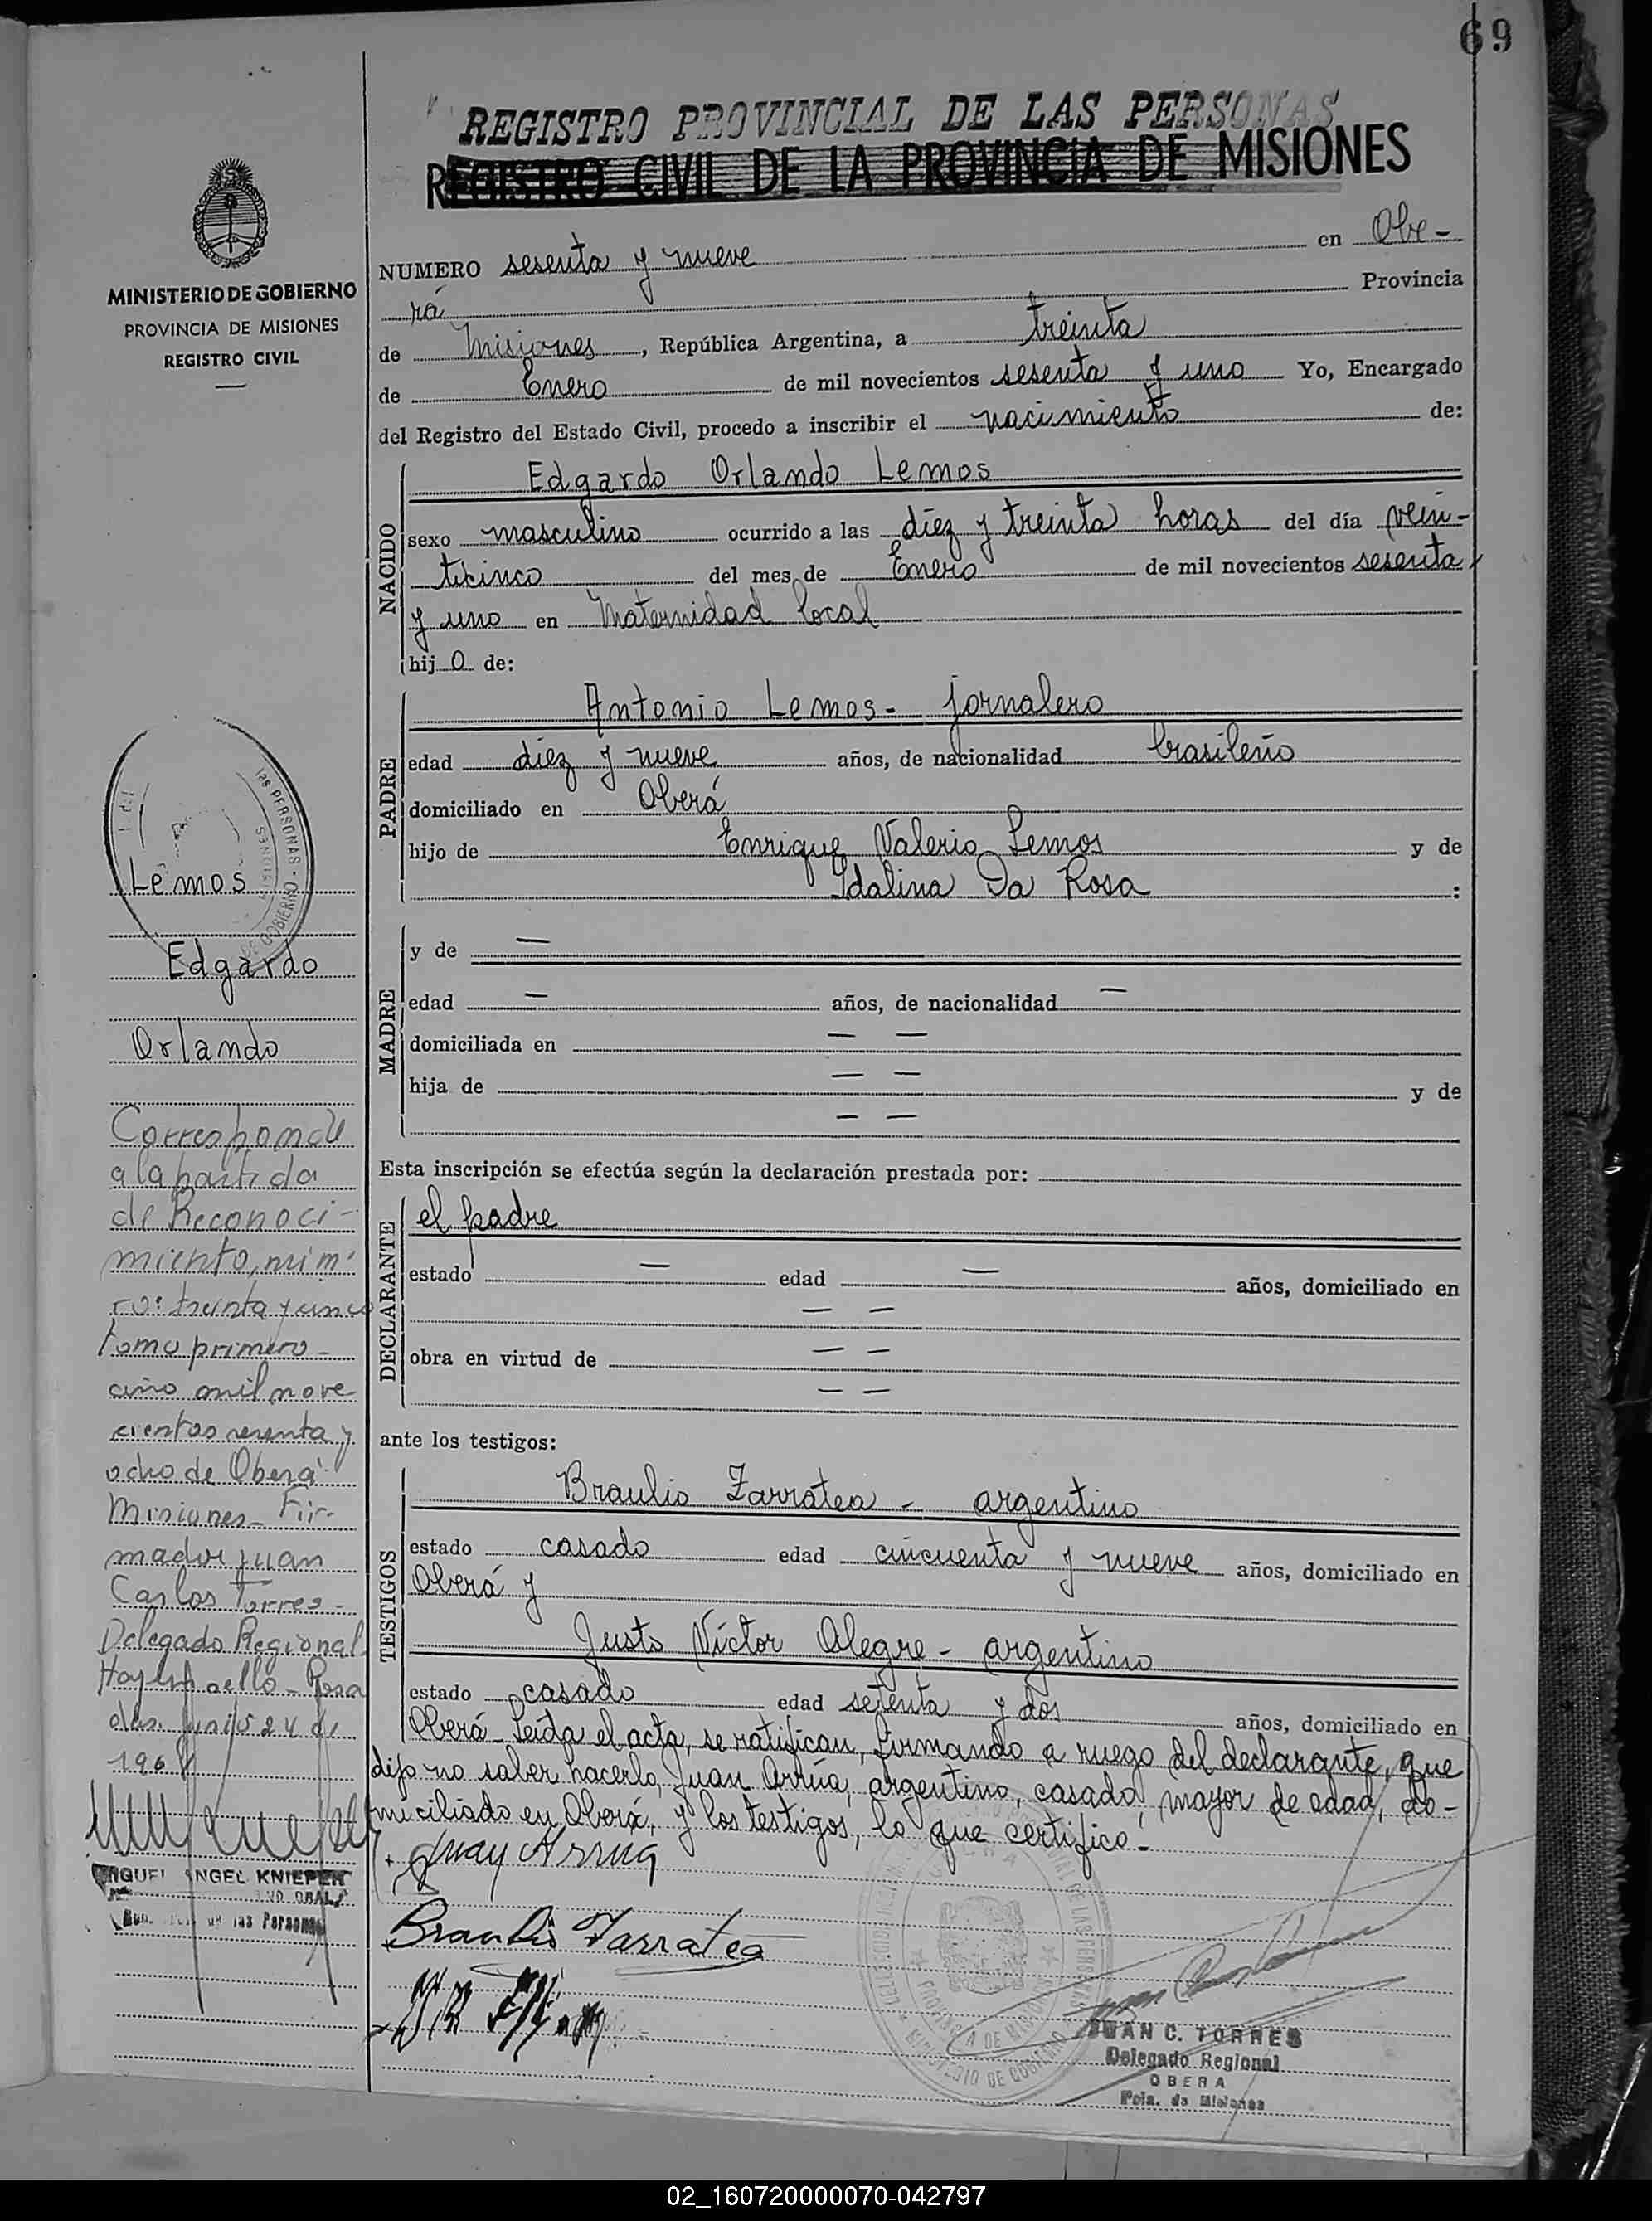 69
REGISTRO PROVINCIAL DE LAS PERSONAS
REGISTRO CIVIL DE LA PROVINCIA DE MISIONES
MINISTERIO DE GOBIERNO
PROVINCIA DE MISIONES
REGISTRO CIVIL
NUMERO sesenta y nueve en Obe-
rá Provincia
de Misiones, República Argentina, a treinta
de Enero de mil novecientos sesenta y uno Yo, Encargado
del Registro del Estado Civil, procedo a inscribir el nacimiento de:
NACIDO
Edgardo Orlando Lemos
sexo masculino ocurrido a las diez y treinta horas del día vein-
ticinco del mes de Enero de mil novecientos sesenta
y uno en Maternidad local
hijo de:
PADRE
Antonio Lemos - jornalero
edad diez y nueve años, de nacionalidad brasileño
domiciliado en Oberá
hijo de Enrique Valerio Lemos y de
Idalina Da Rosa :
MADRE
y de —
edad — años, de nacionalidad —
domiciliada en — —
hija de — — y de
— —
Esta inscripción se efectúa según la declaración prestada por:
DECLARANTE
el padre
estado — edad — años, domiciliado en
— —
obra en virtud de — —
— —
ante los testigos:
TESTIGOS
Braulio Zarratea - argentino
estado casado edad cincuenta y nueve años, domiciliado en
Oberá y
Justo Víctor Alegre - argentino
estado casado edad setenta y dos años, domiciliado en
Oberá - Leída el acta, se ratifican, firmando a ruego del declarante, que
dijo no saber hacerlo, Juan Arrúa, argentino, casado, mayor de edad, do-
miciliado en Oberá, y los testigos, lo que certifico.-
Juan Arrua
Braulio Zarratea
JUAN C. TORRES
Delegado Regional
OBERA
Pcia. de Misiones
PROVINCIA DE MISIONES
MINISTERIO DE GOBIERNO
Lemos
Edgardo
Orlando
Corresponde
a la partida
de Reconoci-
miento, núme
ro: treinta y cinco
tomo primero -
año mil nove
cientos sesenta y
ocho de Oberá
Misiones - Fir-
mador Juan
Carlos Torres -
Delegado Regional
Hay un sello - Posa
das. Junio 24 de
1968
MIGUEL ANGEL KNIEPER
de las Personas
02_160720000070-042797